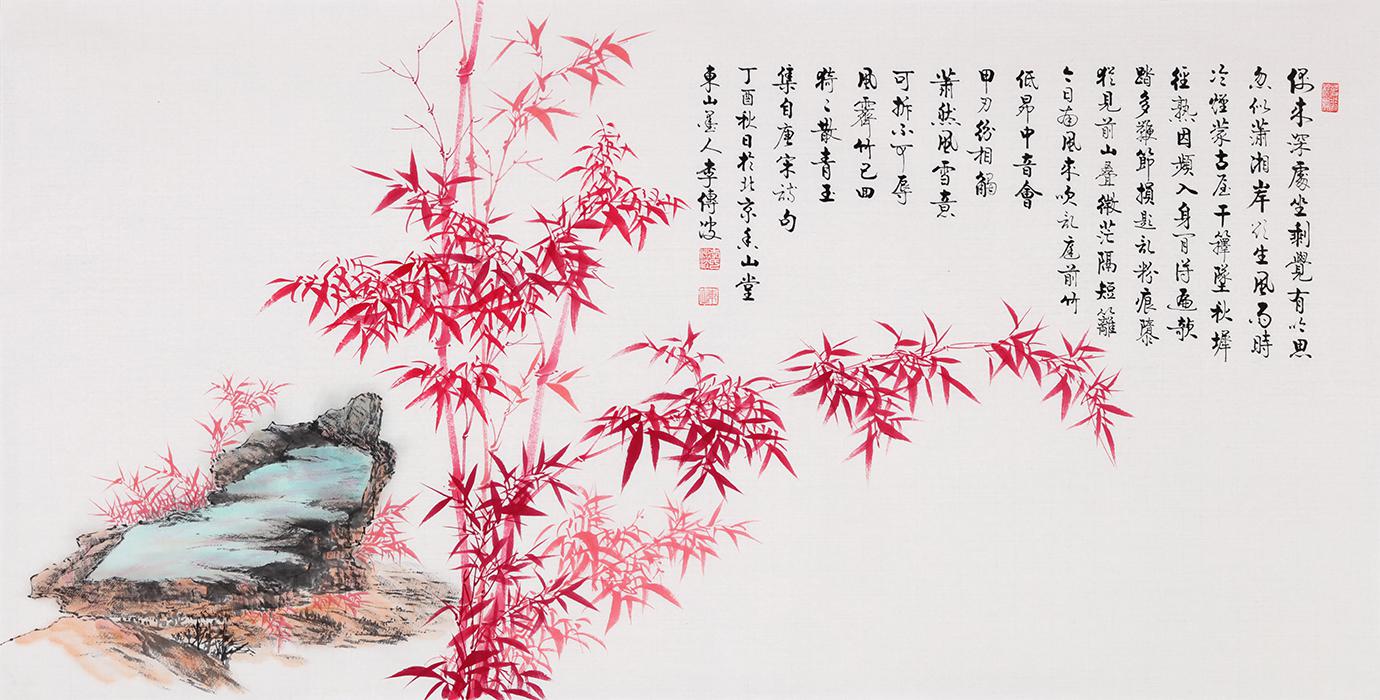 偶來深處坐剩覺有吟思
忽似瀟湘岸欲生風雨時
冷煙蒙古屋干籜墜秋墀
徑熟因頻入身閒得遍欹
踏多鞭節損題亂粉痕隳
猶見前山疊微茫隔短籬
今日南風來吹亂庭前竹
低昂中音會
甲刃紛相觸
蕭然風雪意
可折不可辱
風霽竹已回
猗〻散青玉
集自唐宋詩句
丁酉秋日於北京香山堂
東山墨人李傳波